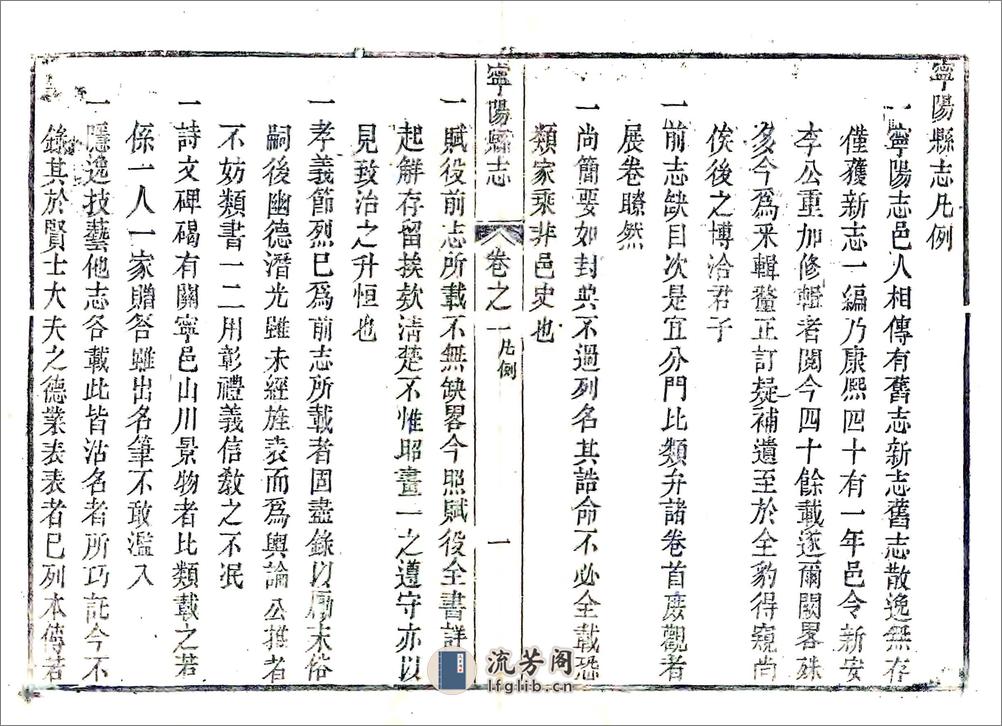 寧陽縣志凡例
一寧陽志邑人相傳有舊志新志舊志散逸無存
僅獲新志一編乃康熙四十有一年邑令新安
李公重加修輯者閱今四十餘載遂爾闕畧殊
多今為采輯釐正訂疑補遺至於全豹得窺尚
俟後之博洽君子
一前志缺目次是宜分門比類弁諸卷首庶觀者
展卷瞭然
一尚簡要如封典不過列名其誥命不必全載恐
類家乘非邑史也
寧陽縣志
卷之一
凡例
一
一賦役前志所載不無缺畧今照賦役全書詳
起解存留挨欵清楚不惟昭畫一之遵守亦以
見致治之升恒也
一孝義節烈已為前志所載者固盡錄以勵末俗
嗣後幽德潛光雖未經旌表而為輿論公推者
不妨類書一二用彰禮義信敎之不泯
一詩文碑碣有關寧邑山川景物者比類載之若
係一人一家贈答雖出名筆不敢濫入
一隱逸技藝他志各載此皆沽名者所巧託今不
錄其於賢士大夫之德業表表者已列本傳若
流芳阁
lfglib.cn